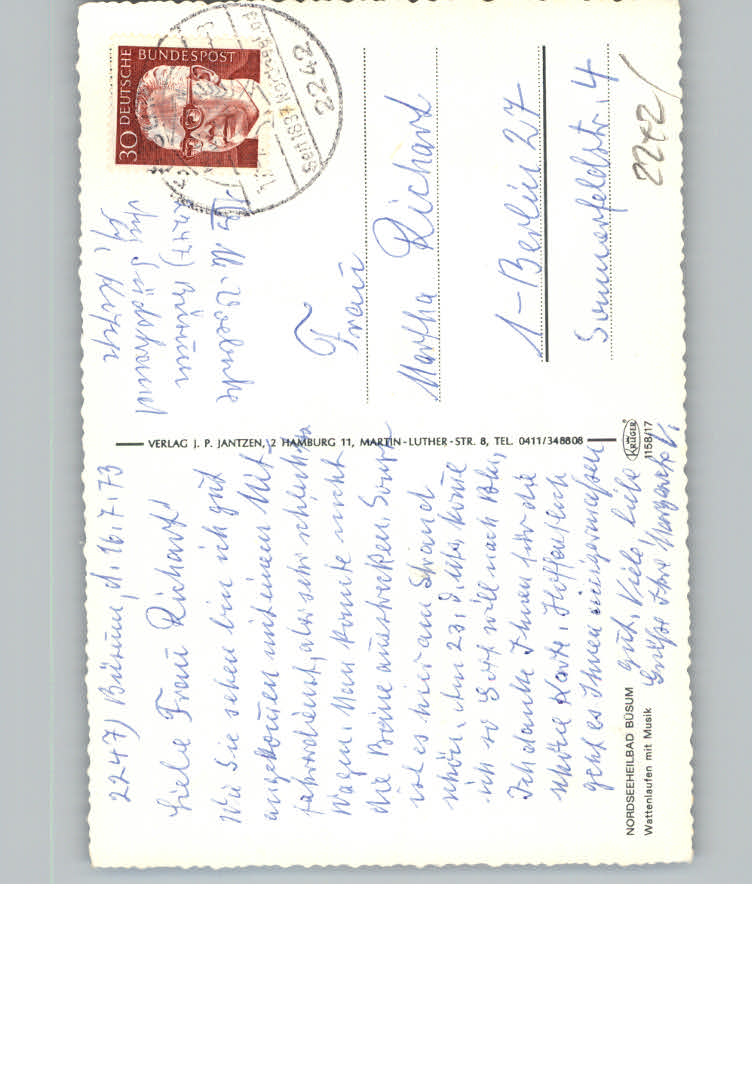 2247) Büsum, d. 16.7.73
Liebe Frau Richard!
Wie Sie sehen bin ich gut
angekommen mit einem Mit-
fahrerdienst, aber sehr schlechter
Wagen. Man konnte nicht
die Beine ausstrecken. Sonst
ist es hier am Strand
schön. Am 23. 8. komme
ich so Gott will nach Bln.
Ich danke Ihnen für die
schöne Karte. Hoffentlich
geht es Ihnen einigermaßen
gut. Viele liebe
Grüße Ihre Margarete V.
NORDSEEHEILBAD BÜSUM
Wattenlaufen mit Musik
VERLAG J. P. JANTZEN, 2 HAMBURG 11, MARTIN-LUTHER-STR. 8, TEL. 0411/348808
KRÜGER
1158/17
2247) Büsum
30 DEUTSCHE BUNDESPOST
2242
seit 1837 Nordseebad
Frau
Martha Richard
1-Berlin 27
Sommerfeldstr. 4
2242/